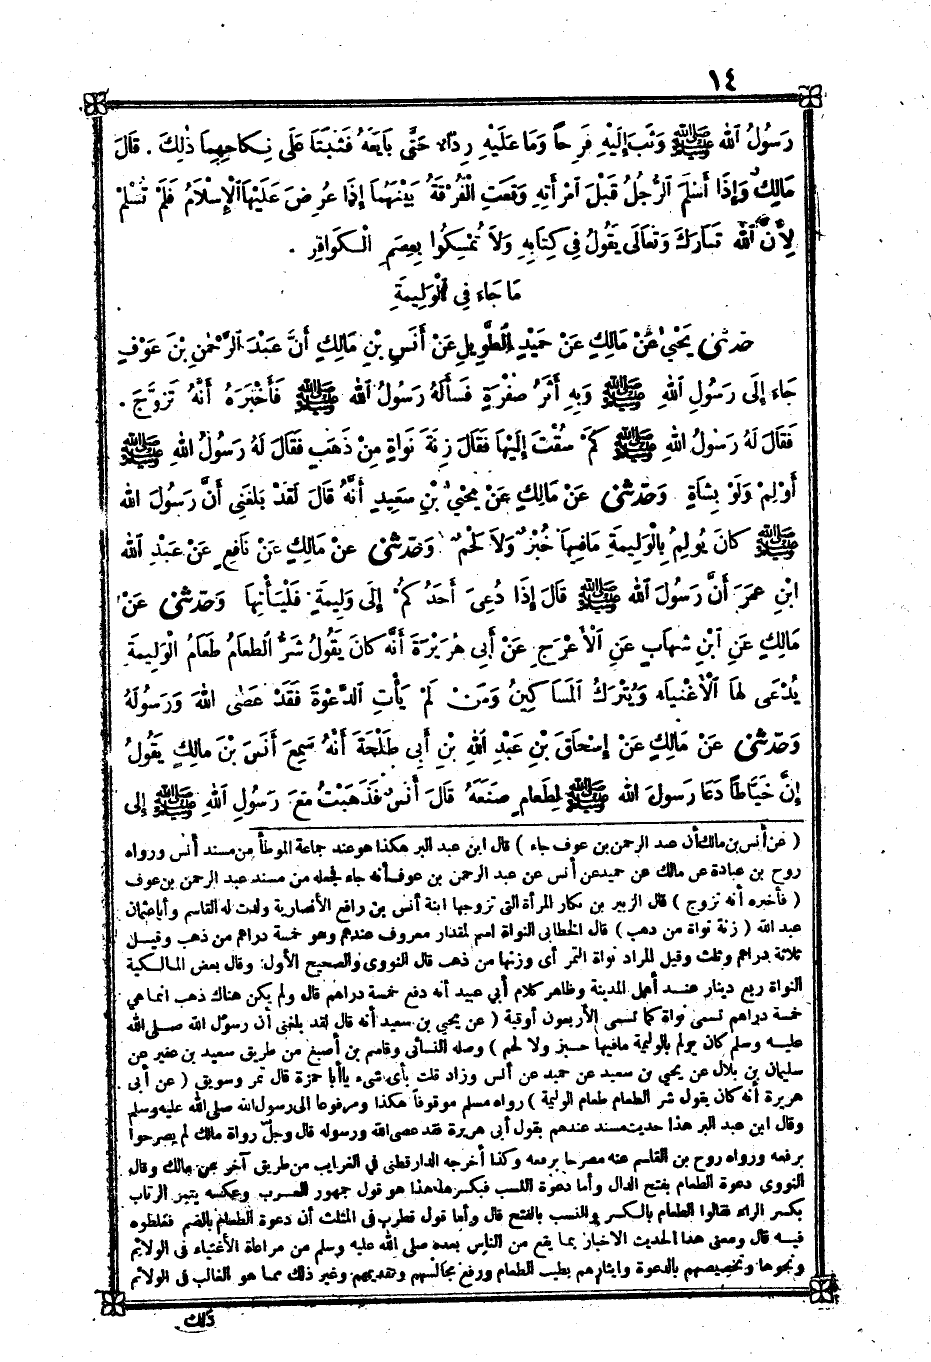 ١٤
رَسُولُ اللهِ ﷺ وَثَبَ إِلَيْهِ فَرِحاً وَمَا عَلَيْهِ رِدَاءٌ حَتَّى بَايَعَهُ فَثَبَتَا عَلَى نِكَاحِهِمَا ذٰلِكَ . قَالَ
مَالِكٌ وَإِذَا أَسْلَمَ الرَّجُلُ قَبْلَ امْرَأَتِهِ وَقَعَتِ الْفُرْقَةُ بَيْنَهُمَا إِذَا عُرِضَ عَلَيْهَا الْإِسْلَامُ فَلَمْ تُسْلِمْ
لِأَنَّ اللهَ تَبَارَكَ وَتَعَالَى يَقُولُ فِي كِتَابِهِ وَلَا تُمْسِكُوا بِعِصَمِ الْكَوَافِرِ .
مَا جَاءَ فِي الْوَلِيمَةِ
حَدَّثَنِي يَحْيَى عَنْ مَالِكٍ عَنْ حُمَيْدٍ الطَّوِيلِ عَنْ أَنَسِ بْنِ مَالِكٍ أَنَّ عَبْدَ الرَّحْمٰنِ بْنَ عَوْفٍ
جَاءَ إِلَى رَسُولِ اللهِ ﷺ وَبِهِ أَثَرُ صُفْرَةٍ فَسَأَلَهُ رَسُولُ اللهِ ﷺ فَأَخْبَرَهُ أَنَّهُ تَزَوَّجَ .
فَقَالَ لَهُ رَسُولُ اللهِ ﷺ كَمْ سُقْتَ إِلَيْهَا فَقَالَ زِنَةَ نَوَاةٍ مِنْ ذَهَبٍ فَقَالَ لَهُ رَسُولُ اللهِ ﷺ
أَوْلِمْ وَلَوْ بِشَاةٍ وَحَدَّثَنِي عَنْ مَالِكٍ عَنْ يَحْيَى بْنِ سَعِيدٍ أَنَّهُ قَالَ لَقَدْ بَلَغَنِي أَنَّ رَسُولَ اللهِ
ﷺ كَانَ يُولِمُ بِالْوَلِيمَةِ مَا فِيهَا خُبْزٌ وَلَا لَحْمٌ وَحَدَّثَنِي عَنْ مَالِكٍ عَنْ نَافِعٍ عَنْ عَبْدِ اللهِ
ابْنِ عُمَرَ أَنَّ رَسُولَ اللهِ ﷺ قَالَ إِذَا دُعِيَ أَحَدُكُمْ إِلَى وَلِيمَةٍ فَلْيَأْتِهَا وَحَدَّثَنِي عَنْ
مَالِكٍ عَنِ ابْنِ شِهَابٍ عَنِ الْأَعْرَجِ عَنْ أَبِي هُرَيْرَةَ أَنَّهُ كَانَ يَقُولُ شَرُّ الطَّعَامُ طَعَامُ الْوَلِيمَةِ
يُدْعَى لَهَا الْأَغْنِيَاءُ وَيُتْرَكُ الْمَسَاكِينُ وَمَنْ لَمْ يَأْتِ الدَّعْوَةَ فَقَدْ عَصَى اللهَ وَرَسُولَهُ
وَحَدَّثَنِي عَنْ مَالِكٍ عَنْ إِسْحَاقَ بْنِ عَبْدِ اللهِ بْنِ أَبِي طَلْحَةَ أَنَّهُ سَمِعَ أَنَسَ بْنَ مَالِكٍ يَقُولُ
إِنَّ خَيَّاطاً دَعَا رَسُولَ اللهِ ﷺ لِطَعَامٍ صَنَعَهُ قَالَ أَنَسٌ فَذَهَبْتُ مَعَ رَسُولِ اللهِ ﷺ إِلَى
( عن أنس بن مالك أن عبد الرحمن بن عوف جاء ) قال ابن عبد البر هكذا هو عند جماعة الموطأ من مسند أنس ورواه
روح بن عبادة عن مالك عن حميد عن أنس عن عبد الرحمن بن عوف أنه جاء فجعله من مسند عبد الرحمن بن عوف
( فأخبره أنه تزوج ) قال الزبير بن بكار المرأة التي تزوجها ابنة أنس بن رافع الأنصارية ولدت له القاسم وأبا عثمان
عبد الله ( زنة نواة من ذهب ) قال الخطابى النواة اسم لمقدار معروف عندهم وهو خمسة دراهم من ذهب وقيل
ثلاثة دراهم وثلث وقيل المراد نواة التمر أى وزنها من ذهب قال النووى والصحيح الأول وقال بعض المالكية
النواة ربع دينار عند أهل المدينة وظاهر كلام أبي عبيد أنه دفع خمسة دراهم قال ولم يكن هناك ذهب انما هي
خمسة دراهم تسمى نواة كما تسمى الأربعون أوقية ( عن يحيى بن سعيد أنه قال لقد بلغنى أن رسول الله صلى الله
عليه وسلم كان يولم بالوليمة مافيها خبز ولا لحم ) وصله النسائى وقاسم بن أصبغ من طريق سعيد بن عفير عن
سليمان بن بلال عن يحيى بن سعيد عن حميد عن أنس وزاد قلت بأى شىء ياأبا حمزة قال تمر وسويق ( عن أبى
هريرة أنه كان يقول شر الطعام طعام الوليمة ) رواه مسلم موقوفا هكذا ومرفوعا الى رسول الله صلى الله عليه وسلم
وقال ابن عبد البر هذا حديث مسند عندهم بقول أبى هريرة فقد عصى الله ورسوله قال وجل رواة مالك لم يصرحوا
برفعه ورواه روح بن القاسم عنه مصرحا برفعه وكذا أخرجه الدارقطنى في الغرايب من طريق آخر عن مالك وقال
النووى دعوة الطعام بفتح الدال وأما دعوة النسب فبكسرها هذا هو قول جمهور العرب وعكسه يتيم الرباب
بكسر الراء فقالوا الطعام بالكسر والنسب بالفتح قال وأما قول قطرب فى المثلث أن دعوة الطعام بالضم فغلطوه
فيه قال ومعنى هذا الحديث الاخبار بما يقع من الناس بعده صلى الله عليه وسلم من مراعاة الأغنياء فى الولائم
ونحوها وتخصيصهم بالدعوة وايثارهم بطيب الطعام ورفع مجالسهم وتقديمهم وغير ذلك مما هو الغالب فى الولائم
ذلك